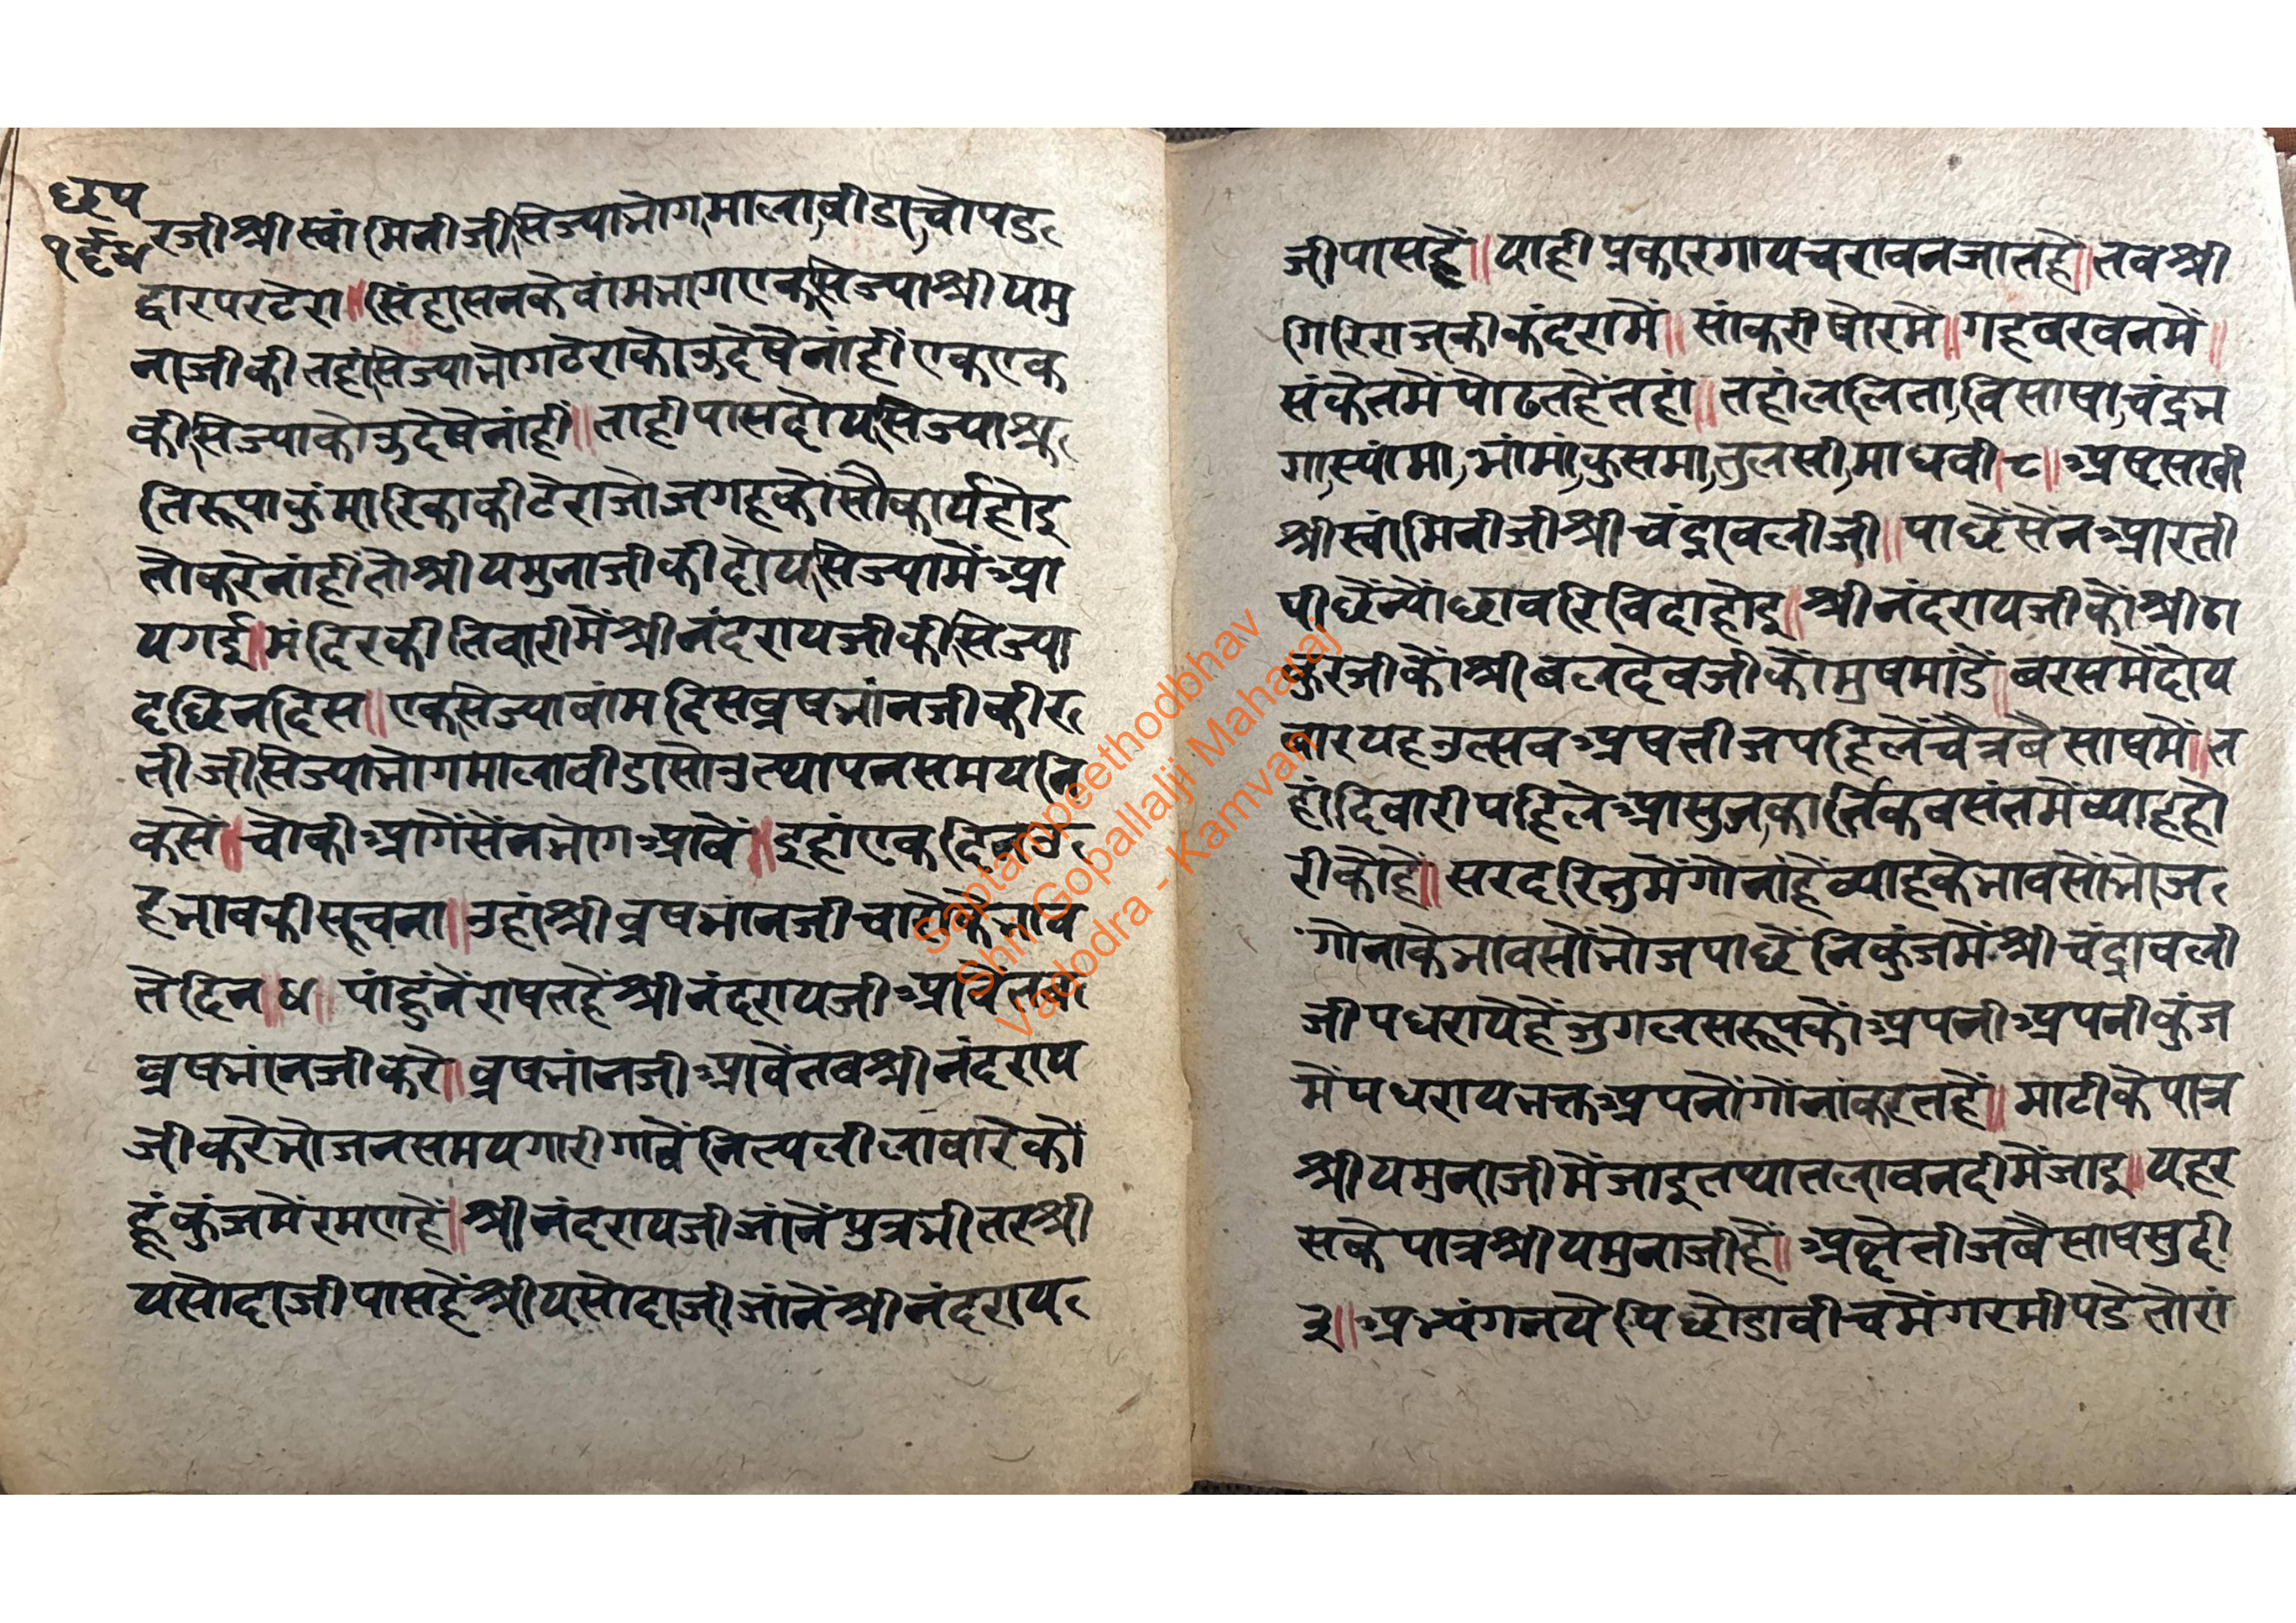 छप
१९४
रजीश्रीस्वांमिनीजीसिज्याभोगमालाबीडाचोपड
द्वारपरटेरा॥सिंहासनकेवांमभागएकसिज्याश्रीयमु
नाजीकीतहांसिज्याभोगटेराकोउद्देषेनांहीएकएक
कीसिज्याकोउद्देषेनांही॥ताहीपासदोयसिज्याश्रु
तिरूपाकुंमारिकाकीटेराजोजगहकोंसौकार्यहोइ
तोकरेनांहींतोश्रीयमुनाजीकीदोयसिज्यामेंआ
यगई॥मंदिरकीतिवारीमेंश्रीनंदरायजीकीसिज्या
दछिनदिस॥एकसिज्यावांमदिसव्रषभांनजीकीर
तीजीसिज्याभोगमालाबीडासोउत्थापनसमयनि
कसे॥चोकीआगेंसेंनभोगआवें॥इहांएकदिन
हभावकीसूचना॥उहांश्रीव्रषभांनजीचालेकेभाव
तेदिन॥४॥पांहुंनेंराषतहेंश्रीनंदरायजीआवेंतब
व्रषभांनजीकरे॥व्रषभांनजीआवेंतबश्रीनंदराय
जीकरेभोजनसमयगारीगावेंनित्यलीलावारेकों
हूंकुंजमेंरमणहें॥श्रीनंदरायजीजांनेंपुत्रभीतरश्री
यसोदाजीपासहेंश्रीयसोदाजीजांनेंश्रीनंदराय
जीपासहें॥याहीप्रकारगायचरावनजातहे॥तबश्री
गिरिराजकीकंदरामें॥सांकरीषोरमें॥गहवरवनमें॥
संकेतमेंपोढतहेंतहां॥तहांललिता,विसाषा,चंद्रभ
गा,स्यांमा,भांमां,कुसमा,तुलसी,माधवी।८॥अष्टसषी
श्रीस्वांमिनीजीश्रीचंद्रावलीजी॥पाछेंसेंनआरती
पीछेंन्योंछावरिविदाहोइ॥श्रीनंदरायजीकोंश्रीठा
कुरजीकोंश्रीबलदेवजीकोंमुषमांडें॥बरसमेंदोय
बारयहउत्सवअषतीजपहिलेंचैत्रबैसाषमें॥त
हांदिवारीपहिलेआसुज,कार्तिकवसंतमेंव्याहहो
रीकोहें॥सरदरितुमेंगोनांहेंव्याहकेभावसोंभोज
गोनाकेभावसोंभोजपाछेंनिकुंजमेंश्रीचंद्रावली
जीपधरायेहेंजुगलसरूपकोंअपनीअपनीकुंज
मेंपधरायभक्तअपनोंगोंनांकरतहें॥माटीकेपात्र
श्रीयमुनाजीमेंजाइतथातलावनदीमेंजाइ॥यहर
सकेपात्रश्रीयमुनाजीहें॥अछैतीजबैसाषसुदी
३॥अभ्यंगनयेपिछोडाबीचमेंगरमीपडेतोरां
Saptampeethodbhav
Shri Gopallalji Maharaj
Vadodra - Kamvan